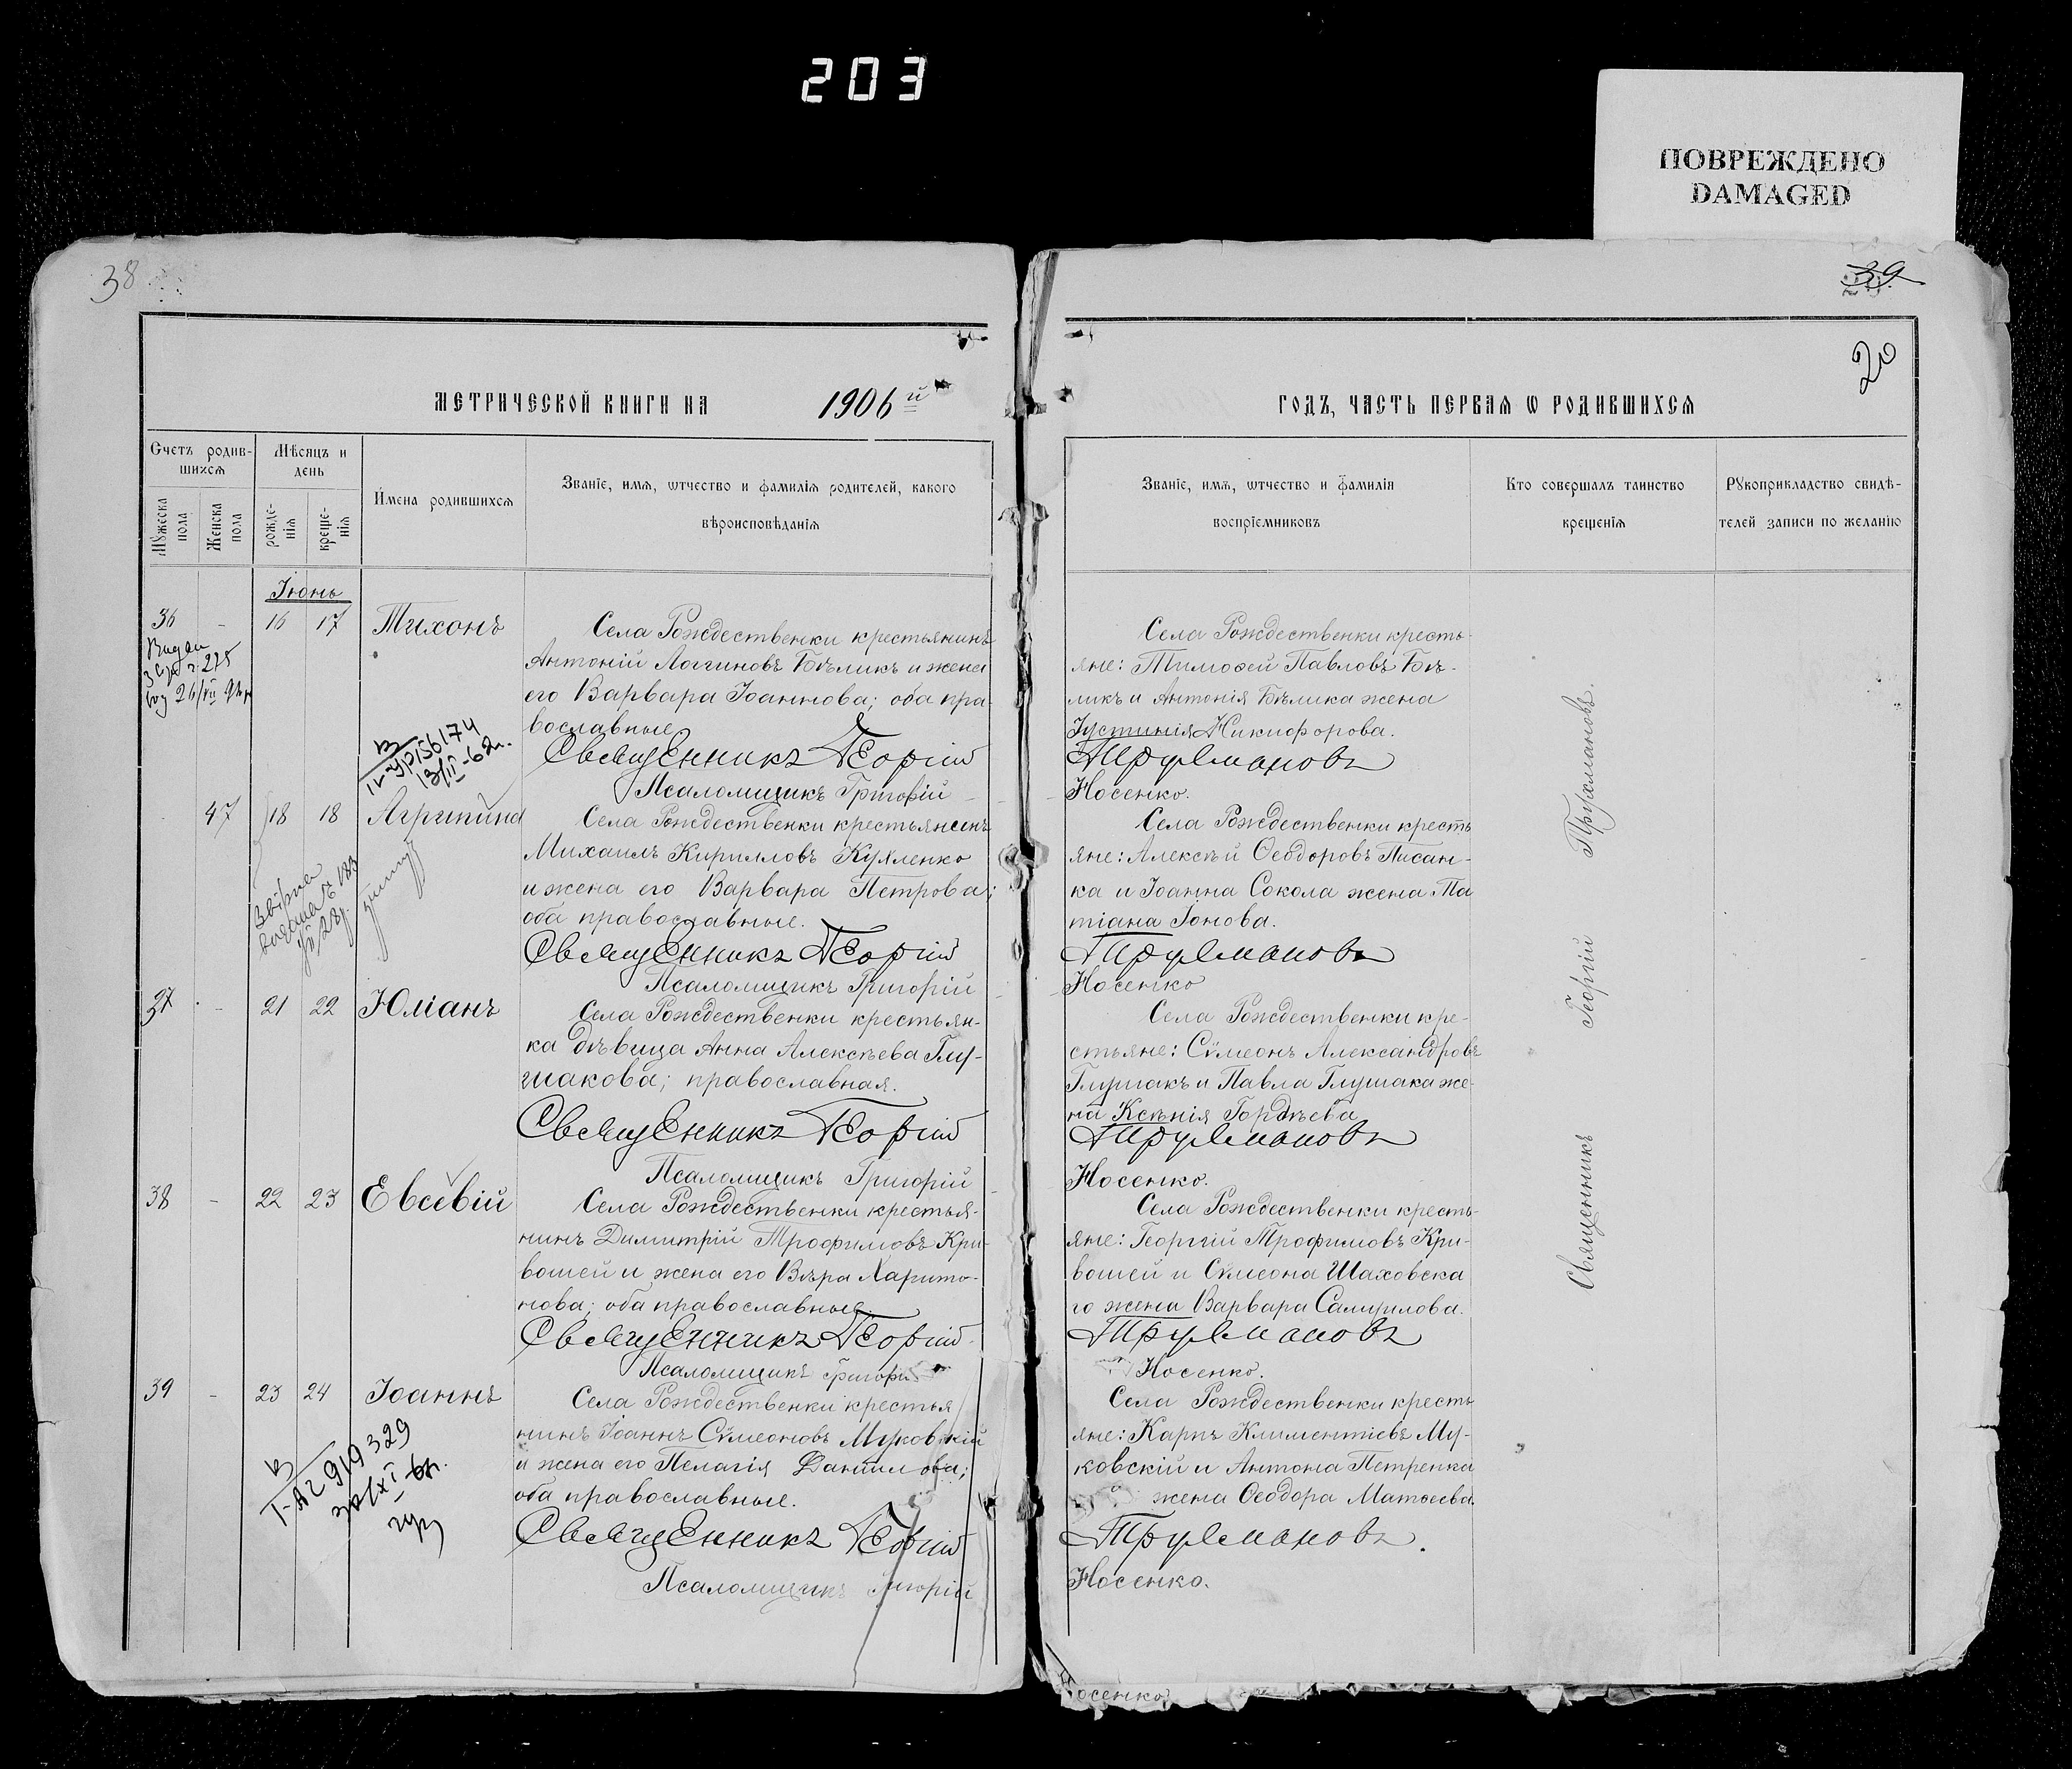 203
ПОВРЕЖДЕНО
DAMAGED
38
39
20
МЕТРИЧЕСКОЙ КНИГИ НА 1906й
ГОДЪ, ЧАСТЬ ПЕРВАЯ Ѡ РОДИВШИХСЯ
Счетъ родив-
шихся
Мѣсяцъ и
день
Имена родившихся
Званіе, имя, ѡтчество и фамилія родителей, какого
вѣроисповѣданія
Мꙋжеска
пола
Женска
пола
рожде-
нія
креще-
нія
Званіе, имя, ѡтчество и фамилія
воспріемниковъ
Кто совершалъ таинство
крещенія
Рꙋкоприкладство свидѣ-
телей записи по желанію
Іюнь
36 - 16 17 Тихонъ
Села Рождественки крестьянинъ
Антоній Логгиновъ Бѣликъ и жена
его Варвара Іоаннова; оба пра-
вославные
Священникъ Георгій
Псаломщикъ Григорій
Села Рождественки кресть-
яне: Тимоѳей Павловъ Бѣ-
ликъ и Антонія Бѣлика жена
Іустинія Никифорова.
Трухмановъ
Носенко.
13/II-62г.
47 18 18 Агрипина
Села Рождественки крестьянинъ
Михаилъ Кирилловъ
и жена его Варвара Петрова;
оба православные.
Священникъ Георгій
Псаломщикъ Григорій
Села Рождественки кресть
яне: Алексѣй Ѳеодоровъ Писан-
ка и Іоанна Сокола жена Та
тіана Іонова.
Трухмановъ
Носенко
37 - 21 22 Юліанъ
Села Рождественки крестьян-
ка дѣвица Анна Алексѣева Глу-
шакова; православная.
Священникъ Георгій
Псаломщикъ Григорій
Села Рождественки кре-
стьяне: Сѵмеонъ Александровъ
Глушакъ и Павла Глушака же-
на Ксѣнія Гордѣева
Трухмановъ
Носенко.
38 - 22 23 Евсевій
Села Рождественки крестья-
нинъ Димитрій Трофимовъ Кри-
вошей и жена его Вѣра Харито-
нова; оба православные.
Священникъ Георгій
Псаломщикъ Григорій
Села Рождественки кресть-
яне: Георгій Трофимовъ Кри-
вошей и Сѵмеона Шаховска
го жена Варвара Самуилова.
Трухмановъ
Носенко.
39 - 23 24 Іоаннъ
Села Рождественки крестья
нинъ Іоаннъ Сѵмеоновъ Муковскій
и жена его Пелагія Даниилова;
оба православные.
Священникъ Георгій
Псаломщикъ Григорій
Села Рождественки кресть
яне: Карпъ Климентіевъ Му-
ковскій и Антона Петренка
жена Ѳеодора Матѳеева.
Трухмановъ.
Носенко.
Священникъ Георгій Трухмановъ.
осенко